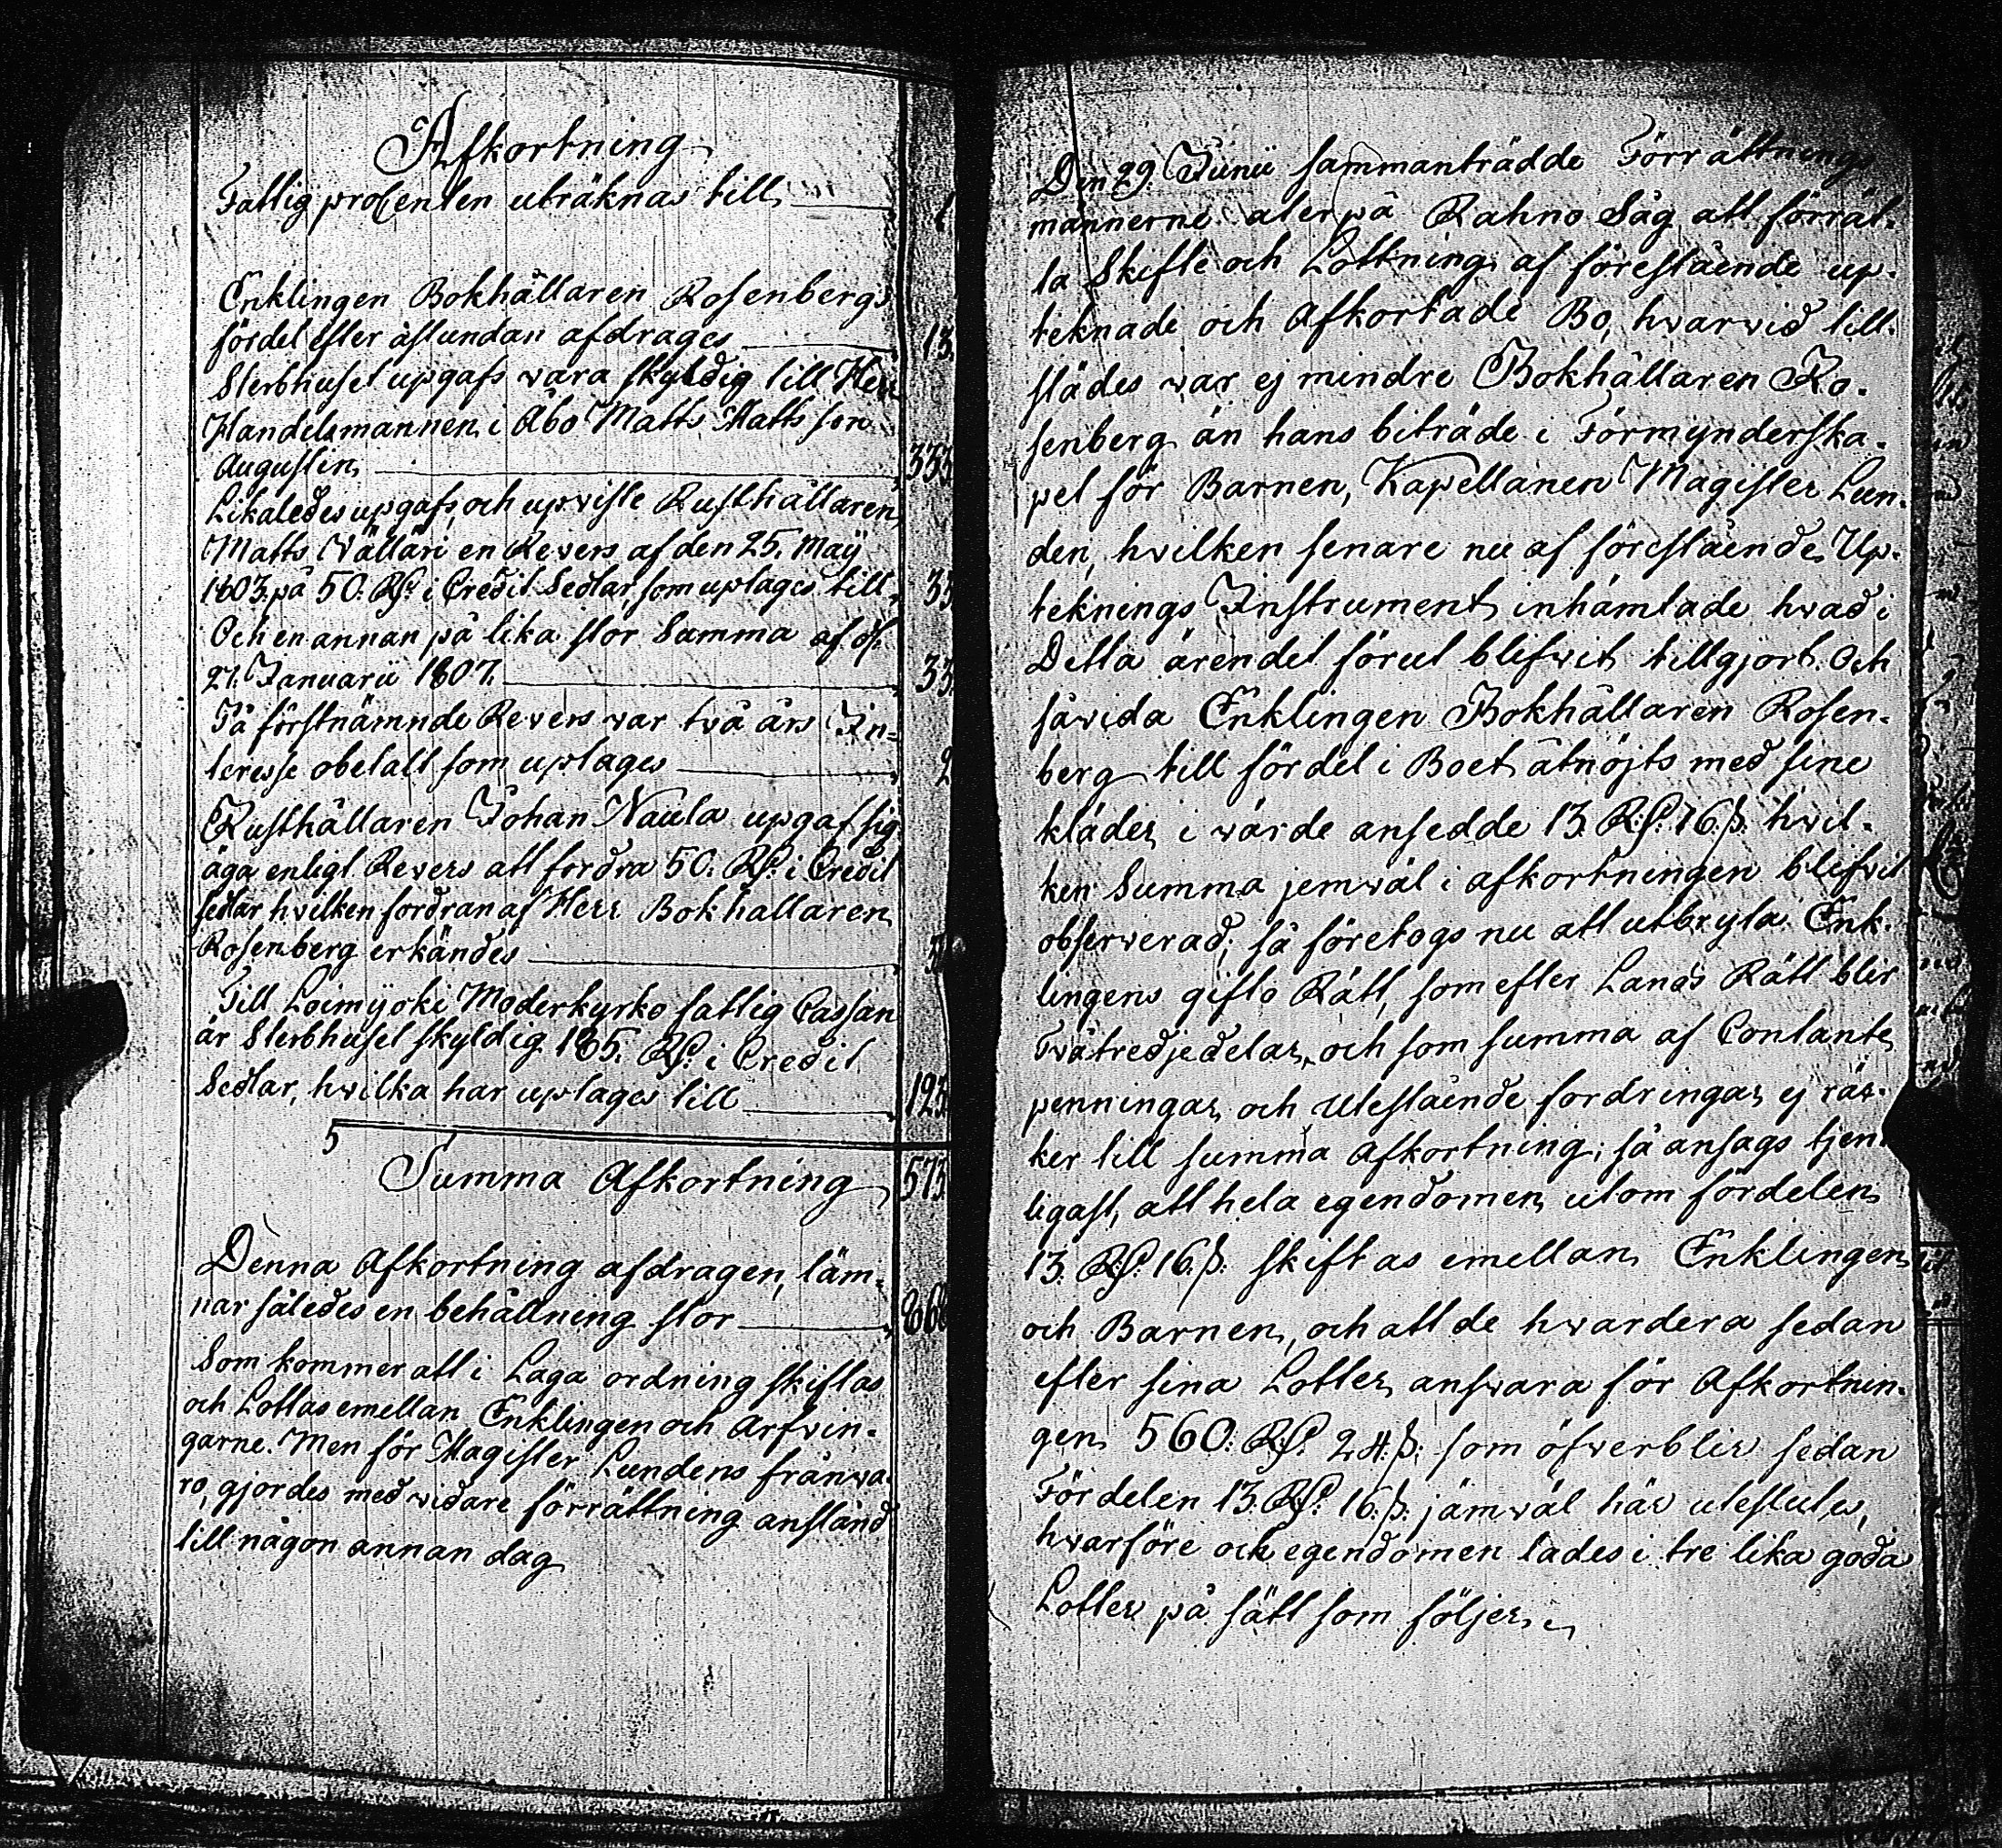 Afkortning
Fattig procenten uträknas till
Enklingen Bokhållaren Rosenbergs
fördel efter åstundan afdrages 13.
Sterbhuset upgafs vara skyldig till Herr
Handelsmannen i Åbo Matts Mattsson
Augustin 333
Likaledes upgafs, och upviste Rusthållaren
Matts Välläri en Revers af den 25. Maÿ
1803. på 50. RS. i Credit Sedlar, som uptages till 33
Och en annan på lika stor Summa af d.
21. Januarii 1807. 33.
På förstnämnde Revers war två års In-
teresse obetalt som uptages 2
Rusthållaren Johan Naula upgaf sig
äga enligt Revers att fordra 50. RS. i Credit
sedlar hvilken fordran af Herr Bokhållaren
Rosenberg erkändes 3
Till Loimijoki Moderkyrko fattig Cassan
är Sterbhuset skyldig 185. RS. i Credit
Sedlar, hwilka här uptages till 123
5
Summa Afkortning 573.
Denna Afkortning afdragen, läm-
nar således en behållning stor 868
Som kommer att i Laga ordning skiftas
och Lottas emellan Enklingen och Arfvin-
garne. Men för Magister Lundens frånva-
ro, gjordes med widare förrättning anstånd
till någon annan dag
Den 29. Junii sammanträdde Förrättnings
männerne åter på Rahno Såg att förrät-
ta Skifte och Lottning af förestående up-
teknade och Afkortade Bo, hwarwid till-
städes war ej mindre Bokhållaren Ro-
senberg än hans biträde i Förmynderska-
pet för Barnen, Kapellanen Magister Lun-
den, hvilken senare nu af förestående Up-
teknings Instrument inhämtade hwad i
Detta ärendet förut blifwit tillgjort. Och
såvida Enklingen Bokhållaren Rosen-
berg till fördel i Boet åtnöjts med sine
kläder i wärde ansedde 13. RS. 16. s. hwil-
ken Summa jemwäl i afkortningen blifvit
observerad; så företogs nu att utbryta Enk-
lingens gifto Rätt, som efter Lands Rätt blir
Twåtredjedelar, och som summa af Contante
penningar och Utestående fordringar ej räc-
ker till summa Afkortning; så ansags tjen-
ligast, att hela egendomen utom fördelen
13. RS. 16. s. skiftas emellan Enklingen
och Barnen, och att de hwardera sedan
efter sina Lotter answara för Afkortnin-
gen 560. RS. 24. s. som öfwerblir sedan
Fördelen 13. RS. 16. s. jämwäl här uteslutes,
hwarföre och egendomen lades i tre lika goda
Lotter på sätt som följer